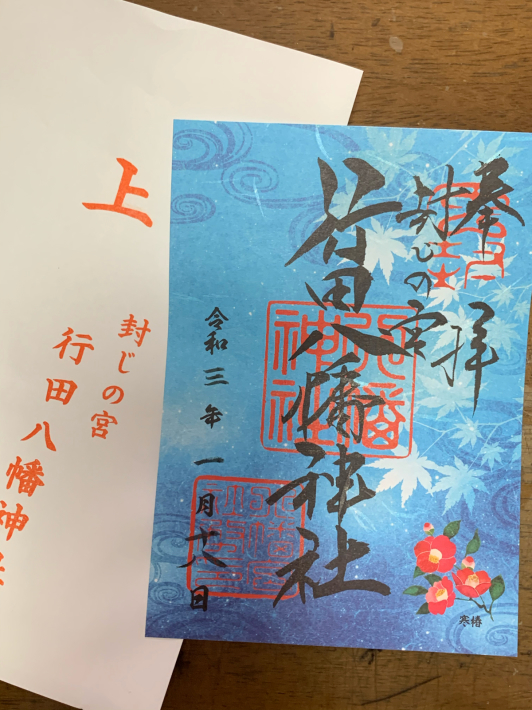 奉拝
封じの宮
行田八幡神社
令和三年一月十八日
寒椿
上
封じの宮
行田八幡神社